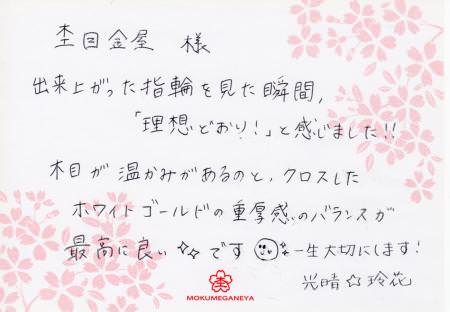 杢目金屋 様
出来上がった指輪を見た瞬間,
「理想どおり!」と感じました!!
木目が温かみがあるのと、クロスした
ホワイトゴールドの重厚感のバランスが
最高に良い✧✧です 一生大切にします!
光晴☆玲花
MOKUMEGANEYA